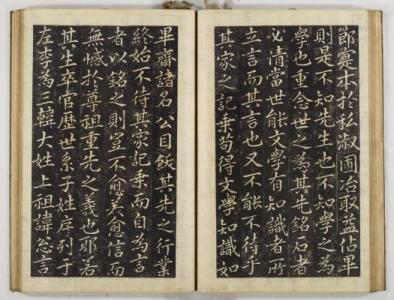 節彙本於私淑圃冶取益佔畢
則是不知先生也不知學之為
學也重念世之為其先銘石者
必請當世能文學有知識者所
立言而其言也又不能不待乎
其家之記乗苟得文學知識如
畢齋諸名公目飭其先之行業
終始不待其家記乗而自為言
者以銘之則豈不愈美愈信而
無憾於尊祖重先之義也耶若
其生卒官歴世系子姓序列于
左李為三韓大姓上祖諱忩言